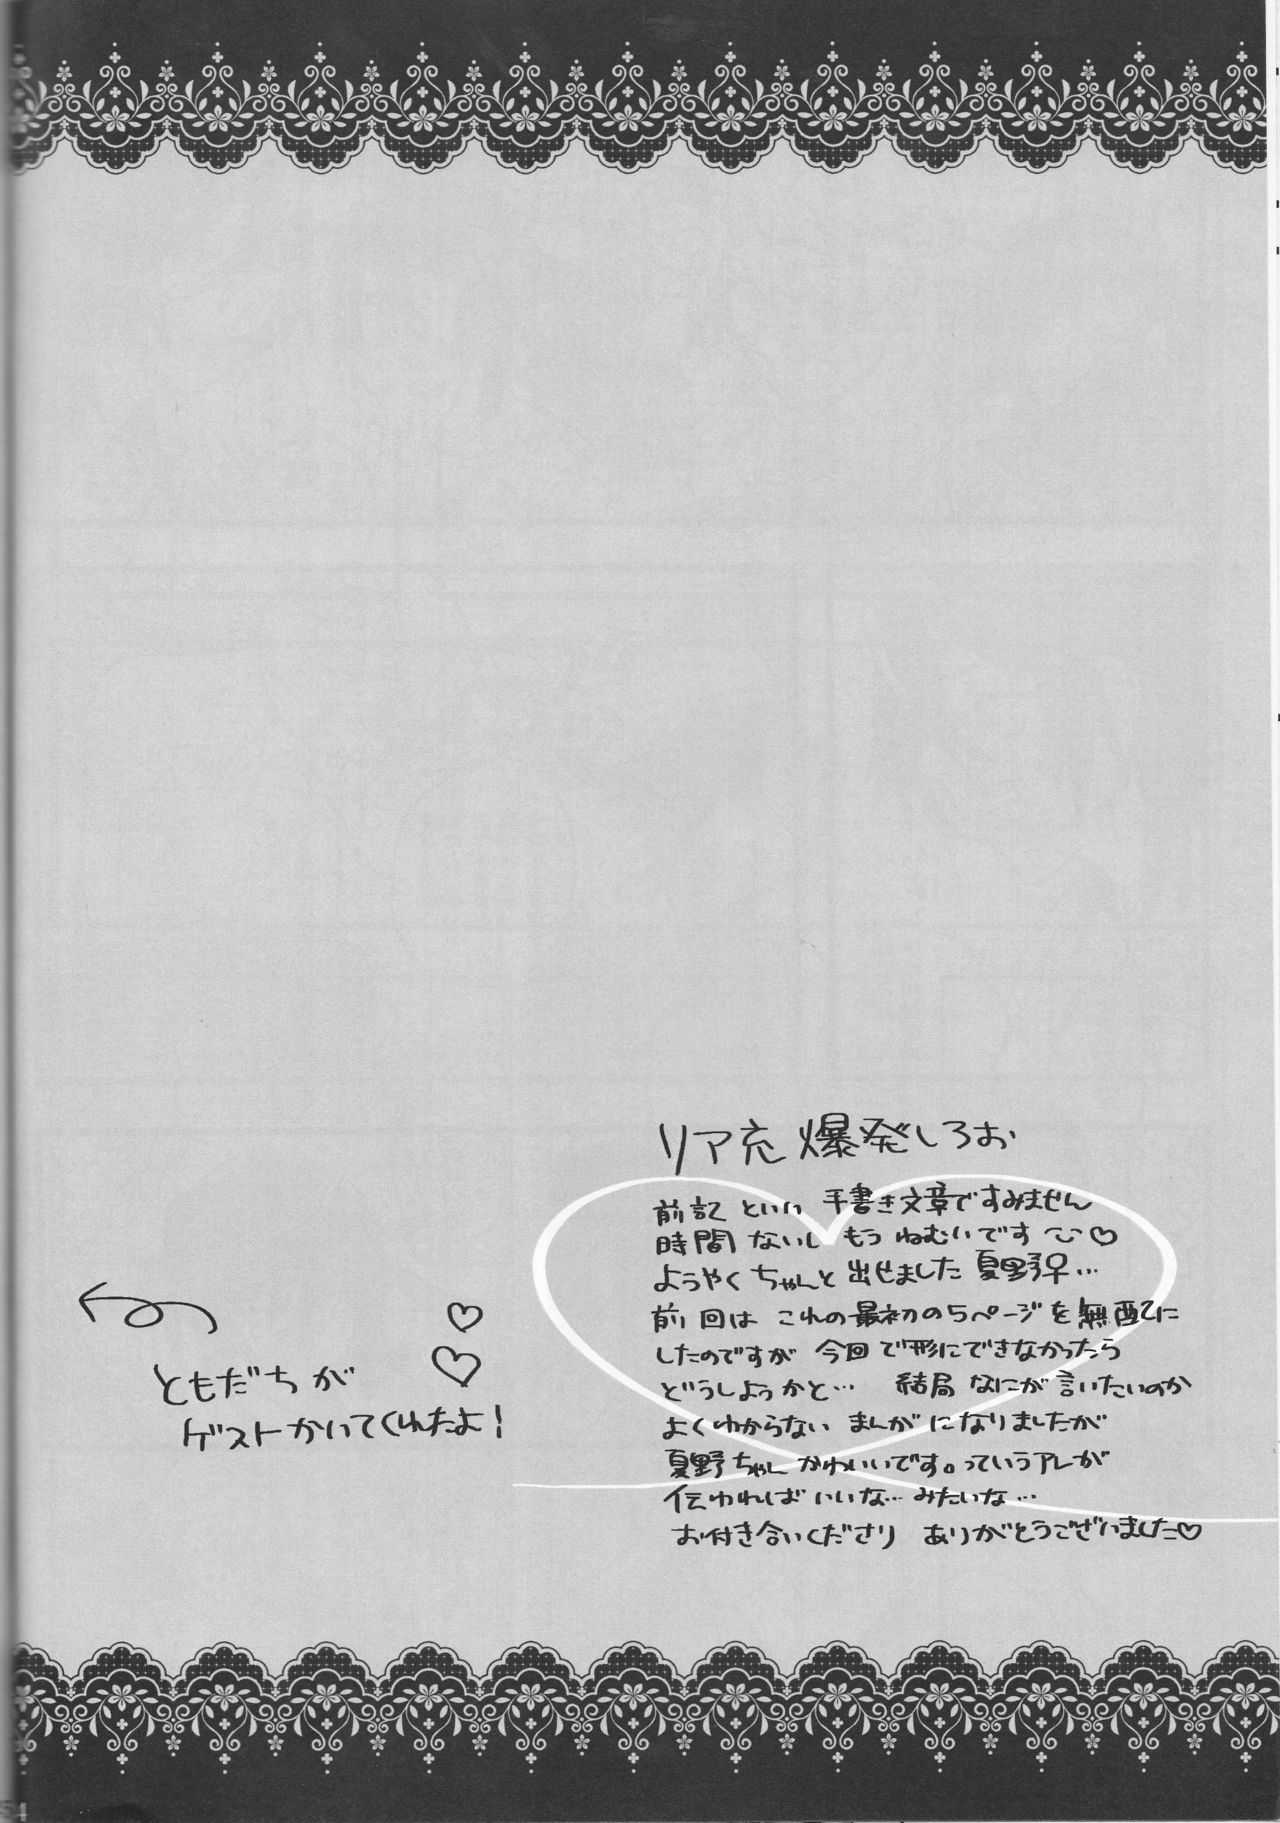 リア充 爆発しろお
前記といい 手書き文章ですみません
時間ないし もう ねむいです ♡
ようやく ちゃんと 出せました 夏野♀…
前回は これの最初の5ページを無配に
したのですが 今回で形にできなかったら
どうしようかと… 結局 なにが言いたいのか
よくわからない まんがになりましたが
夏野ちゃん かわいいです。っていうアレが
伝わればいいな… みたいな…
お付き合いくださり ありがとうございました♡
ともだちが
ゲストかいてくれたよ!
54